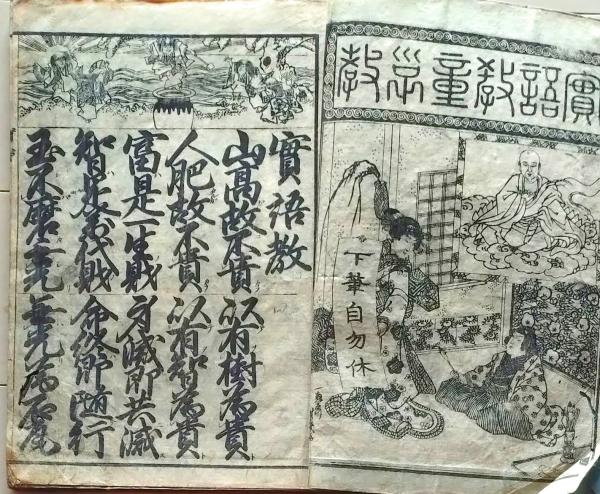 實語教童子教
下筆自勿休
實語教
山高故不貴 以有樹為貴
人肥故不貴 以有智為貴
富是一生財 身滅即共滅
智是万代財 命終即隨行
玉不磨無光 無光為石瓦